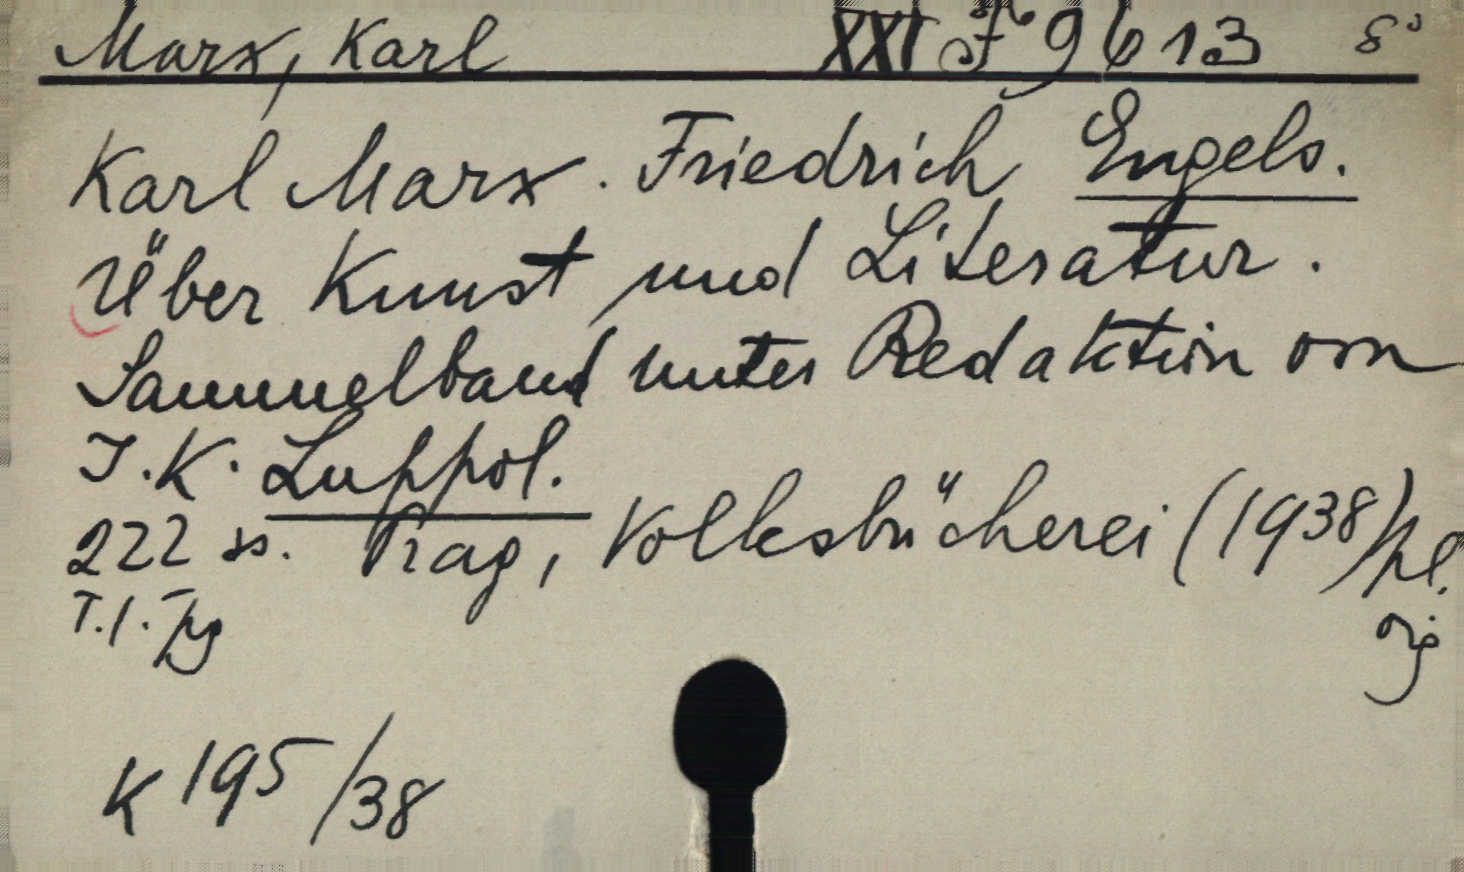 Marx, Karl XXI F 9613 8°
Karl Marx. Friedrich Engels.
Über Kunst und Literatur.
Sammelband unter Redaktion von
I. K. Luppol.
222 ss. Prag, Volksbücherei (1938) pl.
T. l. Pg
K 195/38